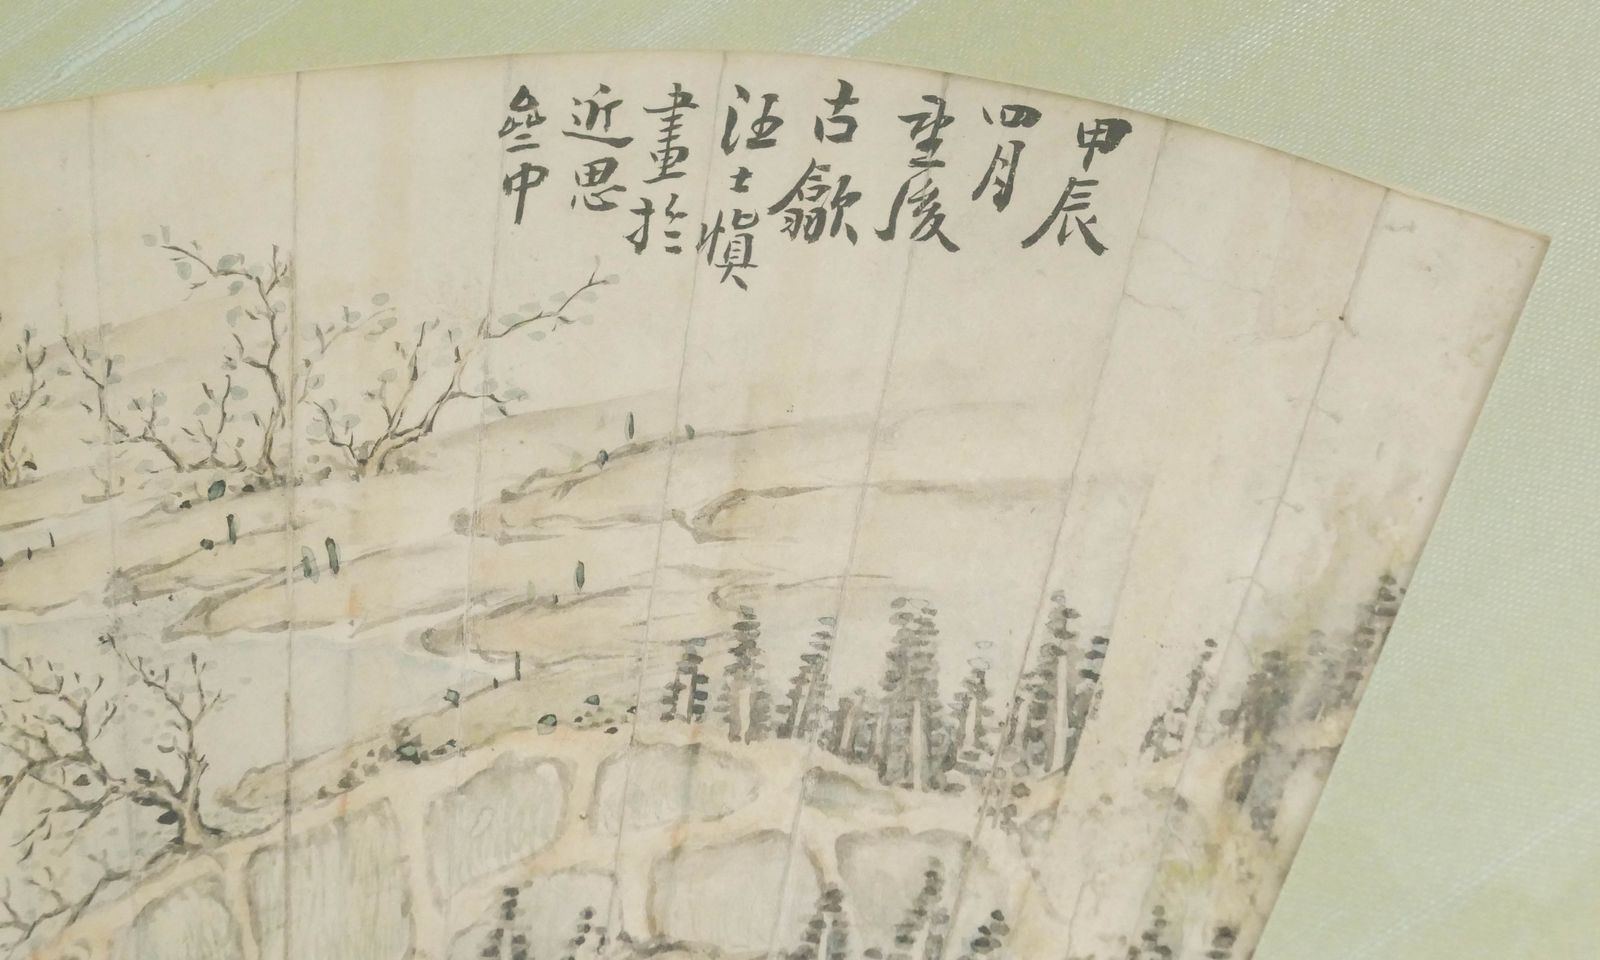 甲辰
四月
望後
古歙
汪士慎
畫於
近思
亝中